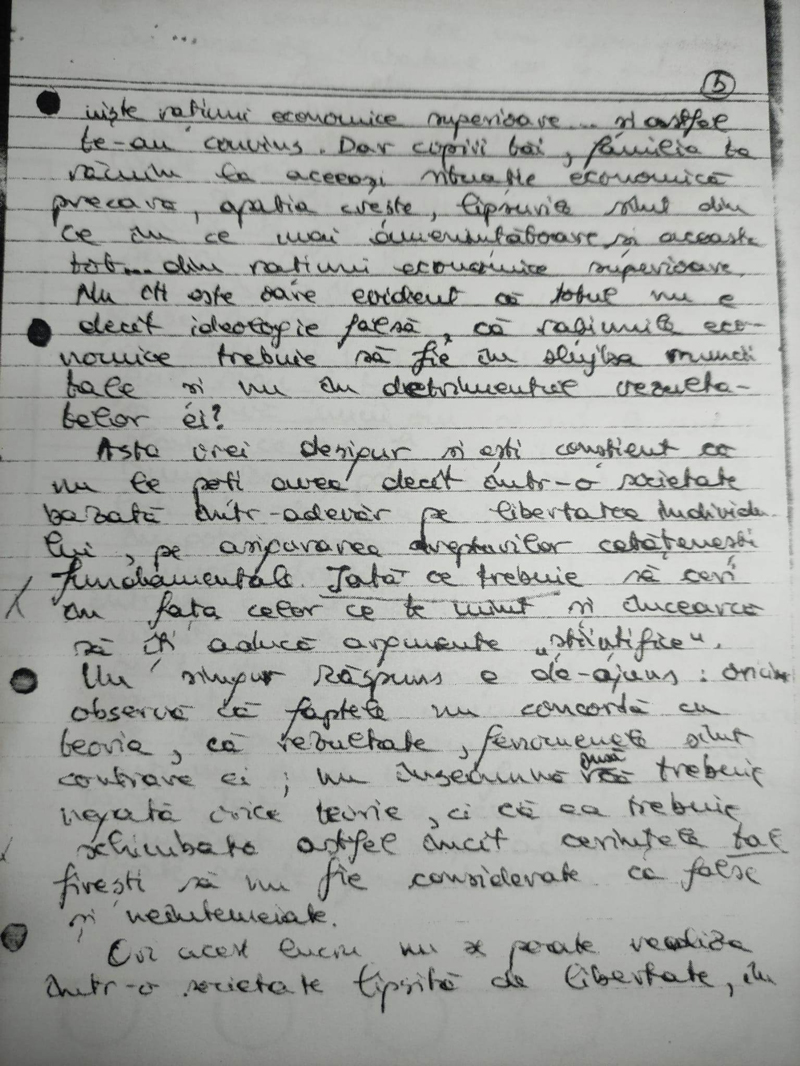 5
niște rațiuni economice superioare... și astfel
te-au convins. Dar copiii tăi, familia ta
rămîn la aceeași situație economică
precară, apatia crește, lipsurile sînt din
ce în ce mai amenințătoare și aceasta
tot... din rațiuni economice superioare.
Nu îți este oare evident că totul nu e
decît ideologie falsă, că rațiunile eco-
nomice trebuie să fie în slujba muncii
tale și nu în detrimentul rezulta-
telor ei?
Asta vrei desigur și ești conștient că
nu le poți avea decît într-o societate
bazată într-adevăr pe libertatea individu-
lui, pe asigurarea drepturilor cetățenești
fundamentale. Iată ce trebuie să ceri
în fața celor ce te mint și încearcă
să îți aducă argumente „științifice".
Un singur răspuns e de-ajuns: oricine
observă că faptele nu concordă cu
teoria, că rezultate, fenomenele sînt
contrare ei; nu înseamnă însă trebuie
negată orice teorie, ci că ea trebuie
schimbată astfel încît cerințele tale
firești să nu fie considerate ca false
și neîntemeiate.
Ori acest lucru nu se poate realiza
într-o societate lipsită de libertate, în